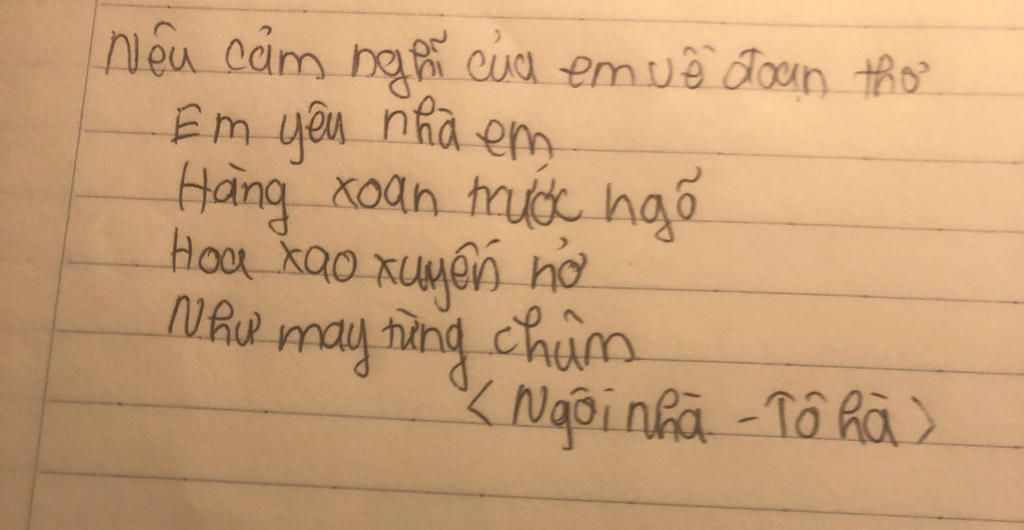 Nêu cảm nghĩ của em về đoạn thơ
Em yêu nhà em
Hàng xoan trước ngõ
Hoa xao xuyến nở
Như may từng chùm
<Ngôi nhà - Tô hà>